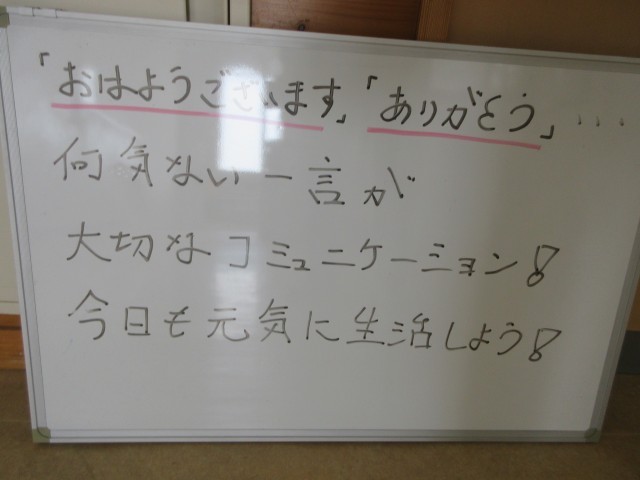 「おはようございます」「ありがとう」...
何気ない一言が
大切なコミュニケーション!
今日も元気に生活しよう!